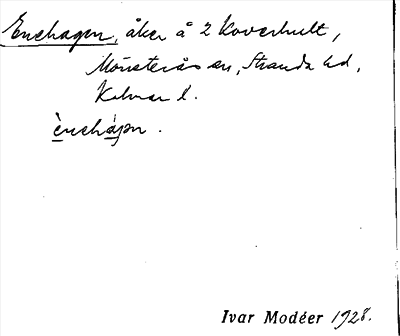 Enehagen, åker å 2 Koverhult,
Mönsterås sn, Stranda hd,
Kalmar l.
ènehá̱gən.
Ivar Modéer 1928.